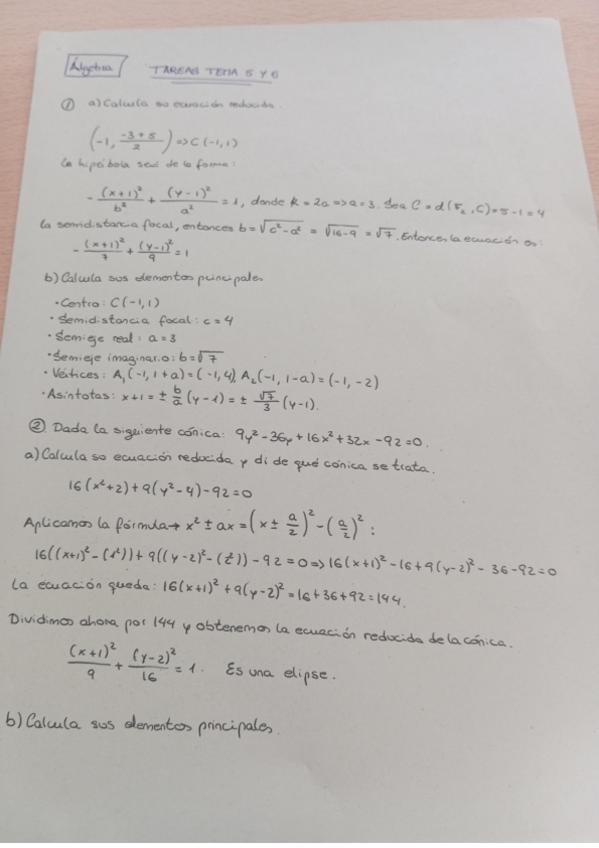 Álgebra TAREAS TEMA 5 Y 6
① a) Calcula su ecuación reducida.
(-1, (-3+5)/2) => C(-1,1)
La hipérbola será de la forma:
-(x+1)²/b² + (y-1)²/a² = 1, donde k = 2a => a = 3. Sea C = d(F₂, C) = 5-1 = 4
la semidistancia focal, entonces b = √(c²-a²) = √(16-9) = √7. Entonces la ecuación es:
-(x+1)²/7 + (y-1)²/9 = 1
b) Calcula sus elementos principales
• Centro: C(-1,1)
• Semidistancia focal: c = 4
• Semieje real: a = 3
• Semieje imaginario: b = √7
• Vértices: A₁(-1, 1+a) = (-1,4), A₂(-1, 1-a) = (-1,-2)
• Asíntotas: x+1 = ± b/a (y-1) = ± √7/3 (y-1).
② Dada la siguiente cónica: 9y² - 36y + 16x² + 32x - 92 = 0.
a) Calcula su ecuación reducida y di de qué cónica se trata.
16(x²+2) + 9(y²-4) - 92 = 0
Aplicamos la fórmula → x² ± ax = (x ± a/2)² - (a/2)²:
16((x+1)² - (1²)) + 9((y-2)² - (2²)) - 92 = 0 => 16(x+1)² - 16 + 9(y-2)² - 36 - 92 = 0
La ecuación queda: 16(x+1)² + 9(y-2)² = 16 + 36 + 92 = 144.
Dividimos ahora por 144 y obtenemos la ecuación reducida de la cónica.
(x+1)²/9 + (y-2)²/16 = 1. Es una elipse.
b) Calcula sus elementos principales.